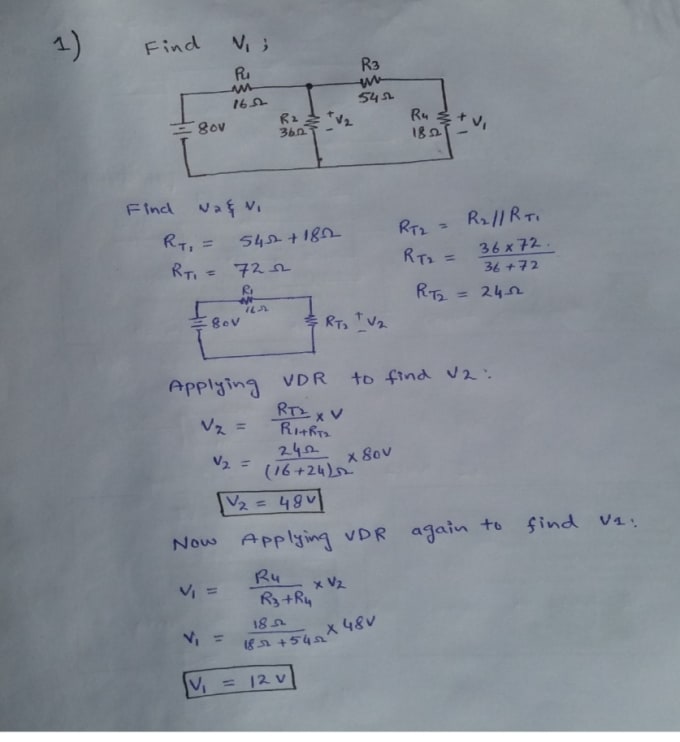 1) Find V₁ ;
R₁ R3
16Ω 54Ω
80V R2 36Ω + V2 - R4 18Ω + V₁ -
Find V2 & V₁
RT₁ = 54Ω + 18Ω
RT₁ = 72Ω
RT2 = R2 // RT₁
RT2 = 36 x 72 / 36 + 72
RT2 = 24Ω
R₁
16Ω
80V RT2 + V2 -
Applying VDR to find V2 :
V2 = RT2 / R1+RT2 x V
V2 = 24Ω / (16+24)Ω x 80V
V2 = 48V
Now Applying VDR again to find V1 :
V₁ = R4 / R3+R4 x V2
V₁ = 18Ω / 18Ω + 54Ω x 48V
V₁ = 12V